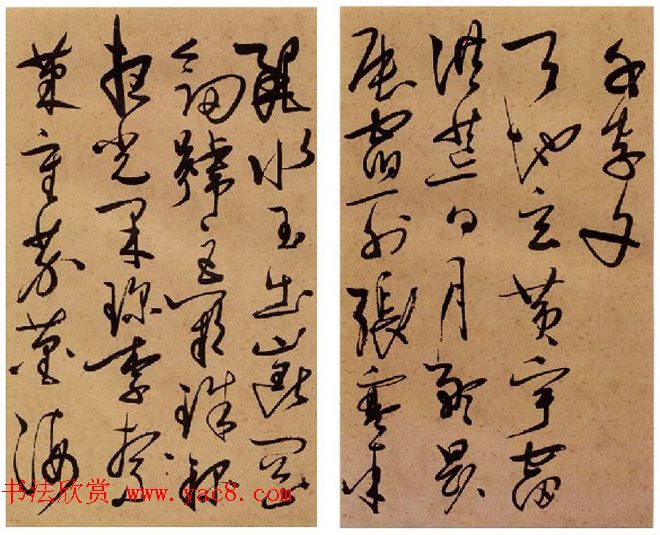 千字文
天地玄黄宇宙
洪荒日月盈昃
辰宿列張寒来
麗水玉出崑岡
劍號巨闕珠稱
夜光果珍李柰
菜重芥薑海
书法欣赏 www.yac8.com